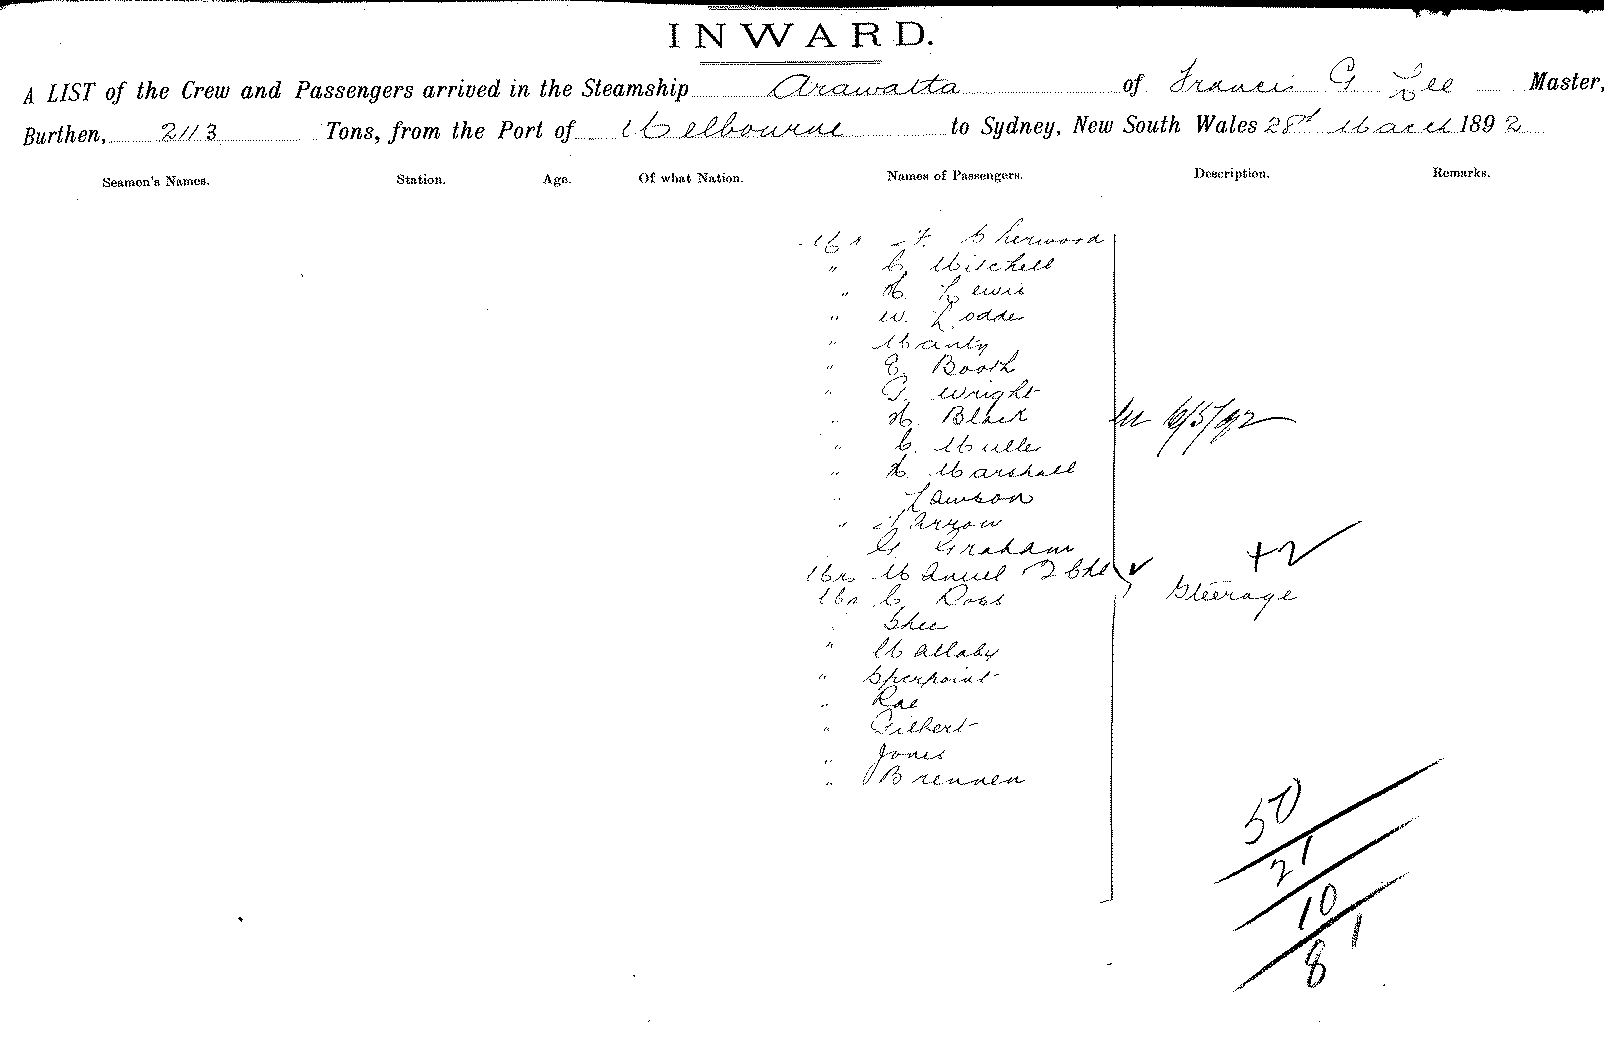 INWARD.
A LIST of the Crew and Passengers arrived in the Steamship Arawatta of Francis G Lee Master,
Burthen, 2113 Tons, from the Port of Melbourne to Sydney, New South Wales 28th March 1892
Seamen's Names. Station. Age. Of what Nation. Names of Passengers. Description. Remarks.
Mr F. Sherwood
" C. Mitchell
" H. Lewis
" W. Lodde
" Manly
" E. Booth
" G. Wright
" H. Black
6/5/92
" C. Muller
" H. Marshall
" Lawson
" Farrow
G. Graham
+2
Mrs Manuel 2 Chd
Mr C. Ross
Steerage
Shee
" Mallaby
" Sherpoint
" Rae
" Gilbert
" Jones
" Brennen
50
21
10
81